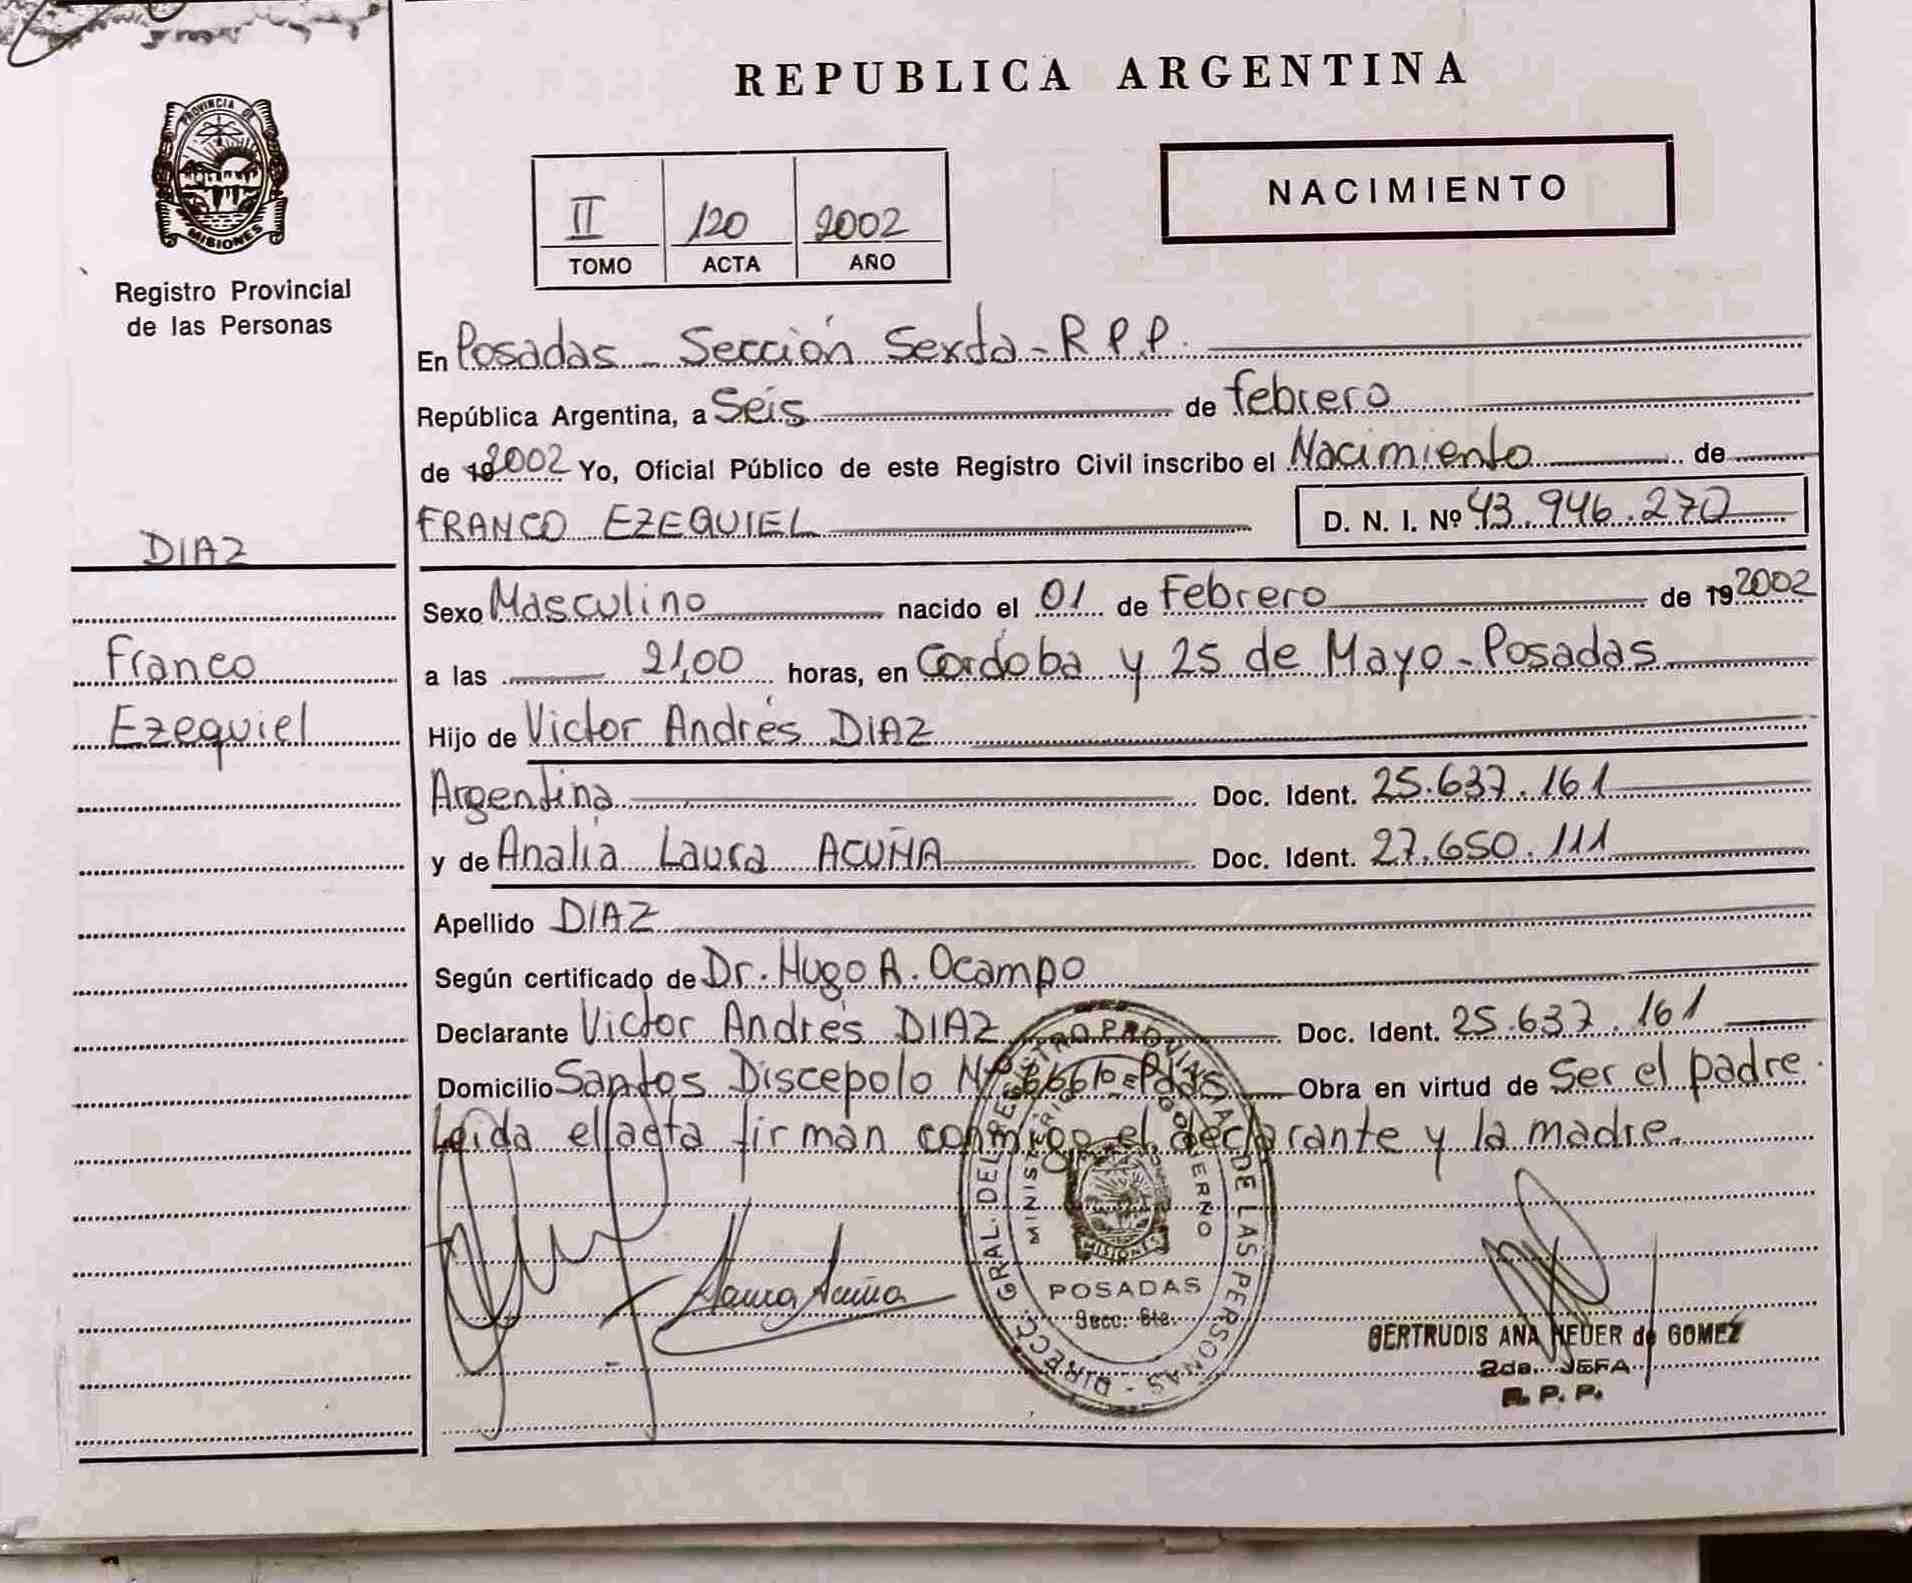 PROVINCIA DE
MISIONES
Registro Provincial
de las Personas
DIAZ
Franco
Ezequiel
REPUBLICA ARGENTINA
II 120 2002
TOMO ACTA AÑO
NACIMIENTO
En Posadas - Sección Sexta - R.P.P.
República Argentina, a Seis de febrero
de 19 2002 Yo, Oficial Público de este Registro Civil inscribo el Nacimiento de
FRANCO EZEQUIEL D. N. I. Nº 43.946.270
Sexo Masculino nacido el 01 de Febrero de 19 2002
a las 21,00 horas, en Cordoba y 25 de Mayo - Posadas
Hijo de Victor Andrés DIAZ
Argentina Doc. Ident. 25.637.161
y de Analía Laura ACUÑA Doc. Ident. 27.650.111
Apellido DIAZ
Según certificado de Dr. Hugo A. Ocampo
Declarante Victor Andrés DIAZ Doc. Ident. 25.637.161
Domicilio Santos Discepolo Nº Pdas Obra en virtud de Ser el padre.
Leida el acta firman conmigo el declarante y la madre.
Laura Acuña
DIRECC. GRAL. DEL REGISTRO PROVINCIAL DE LAS PERSONAS -
MINISTERIO DE GOBIERNO
MISIONES
POSADAS
Secc. 6ta.
GERTRUDIS ANA HEUER de GOMEZ
2da. JEFA
R. P. P.